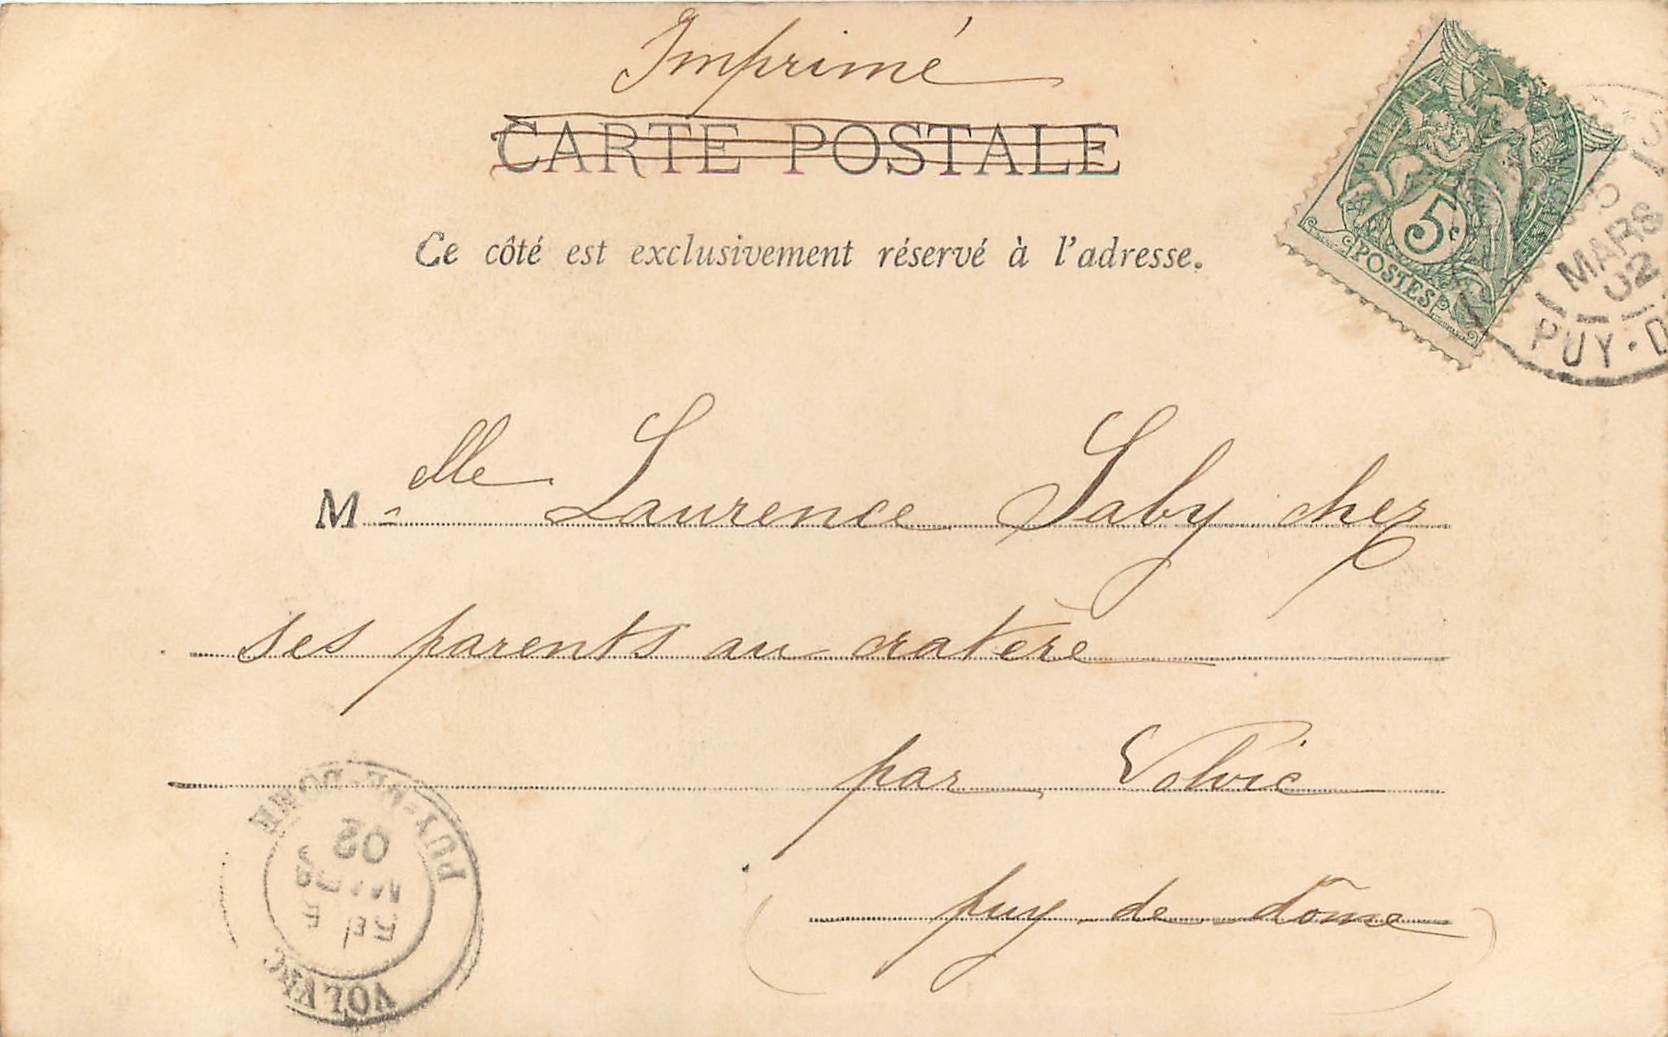 Imprimé
CARTE POSTALE
Ce côté est exclusivement réservé à l'adresse.
5c
POSTES
MARS
02
PUY-D
Melle Laurence Saby chez
ses parents au cratère
par Volvic
(puy-de-dôme)
PUY-DE-DOME
02
MARS
VOLVIC